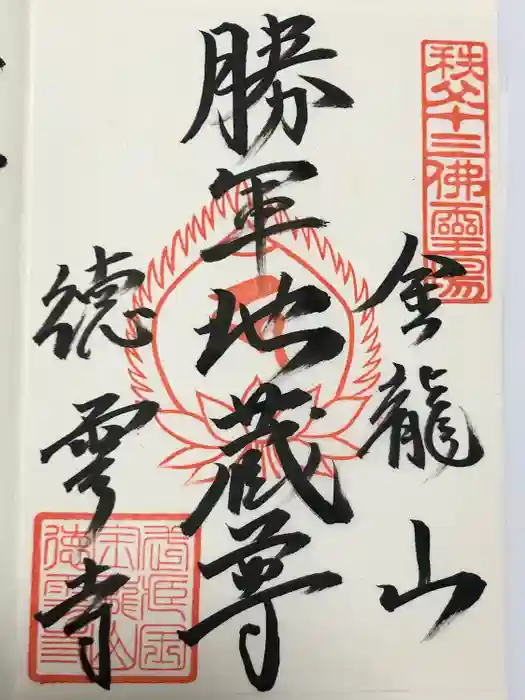 秩父十三佛霊場
金龍山
勝軍地蔵尊
徳雲寺